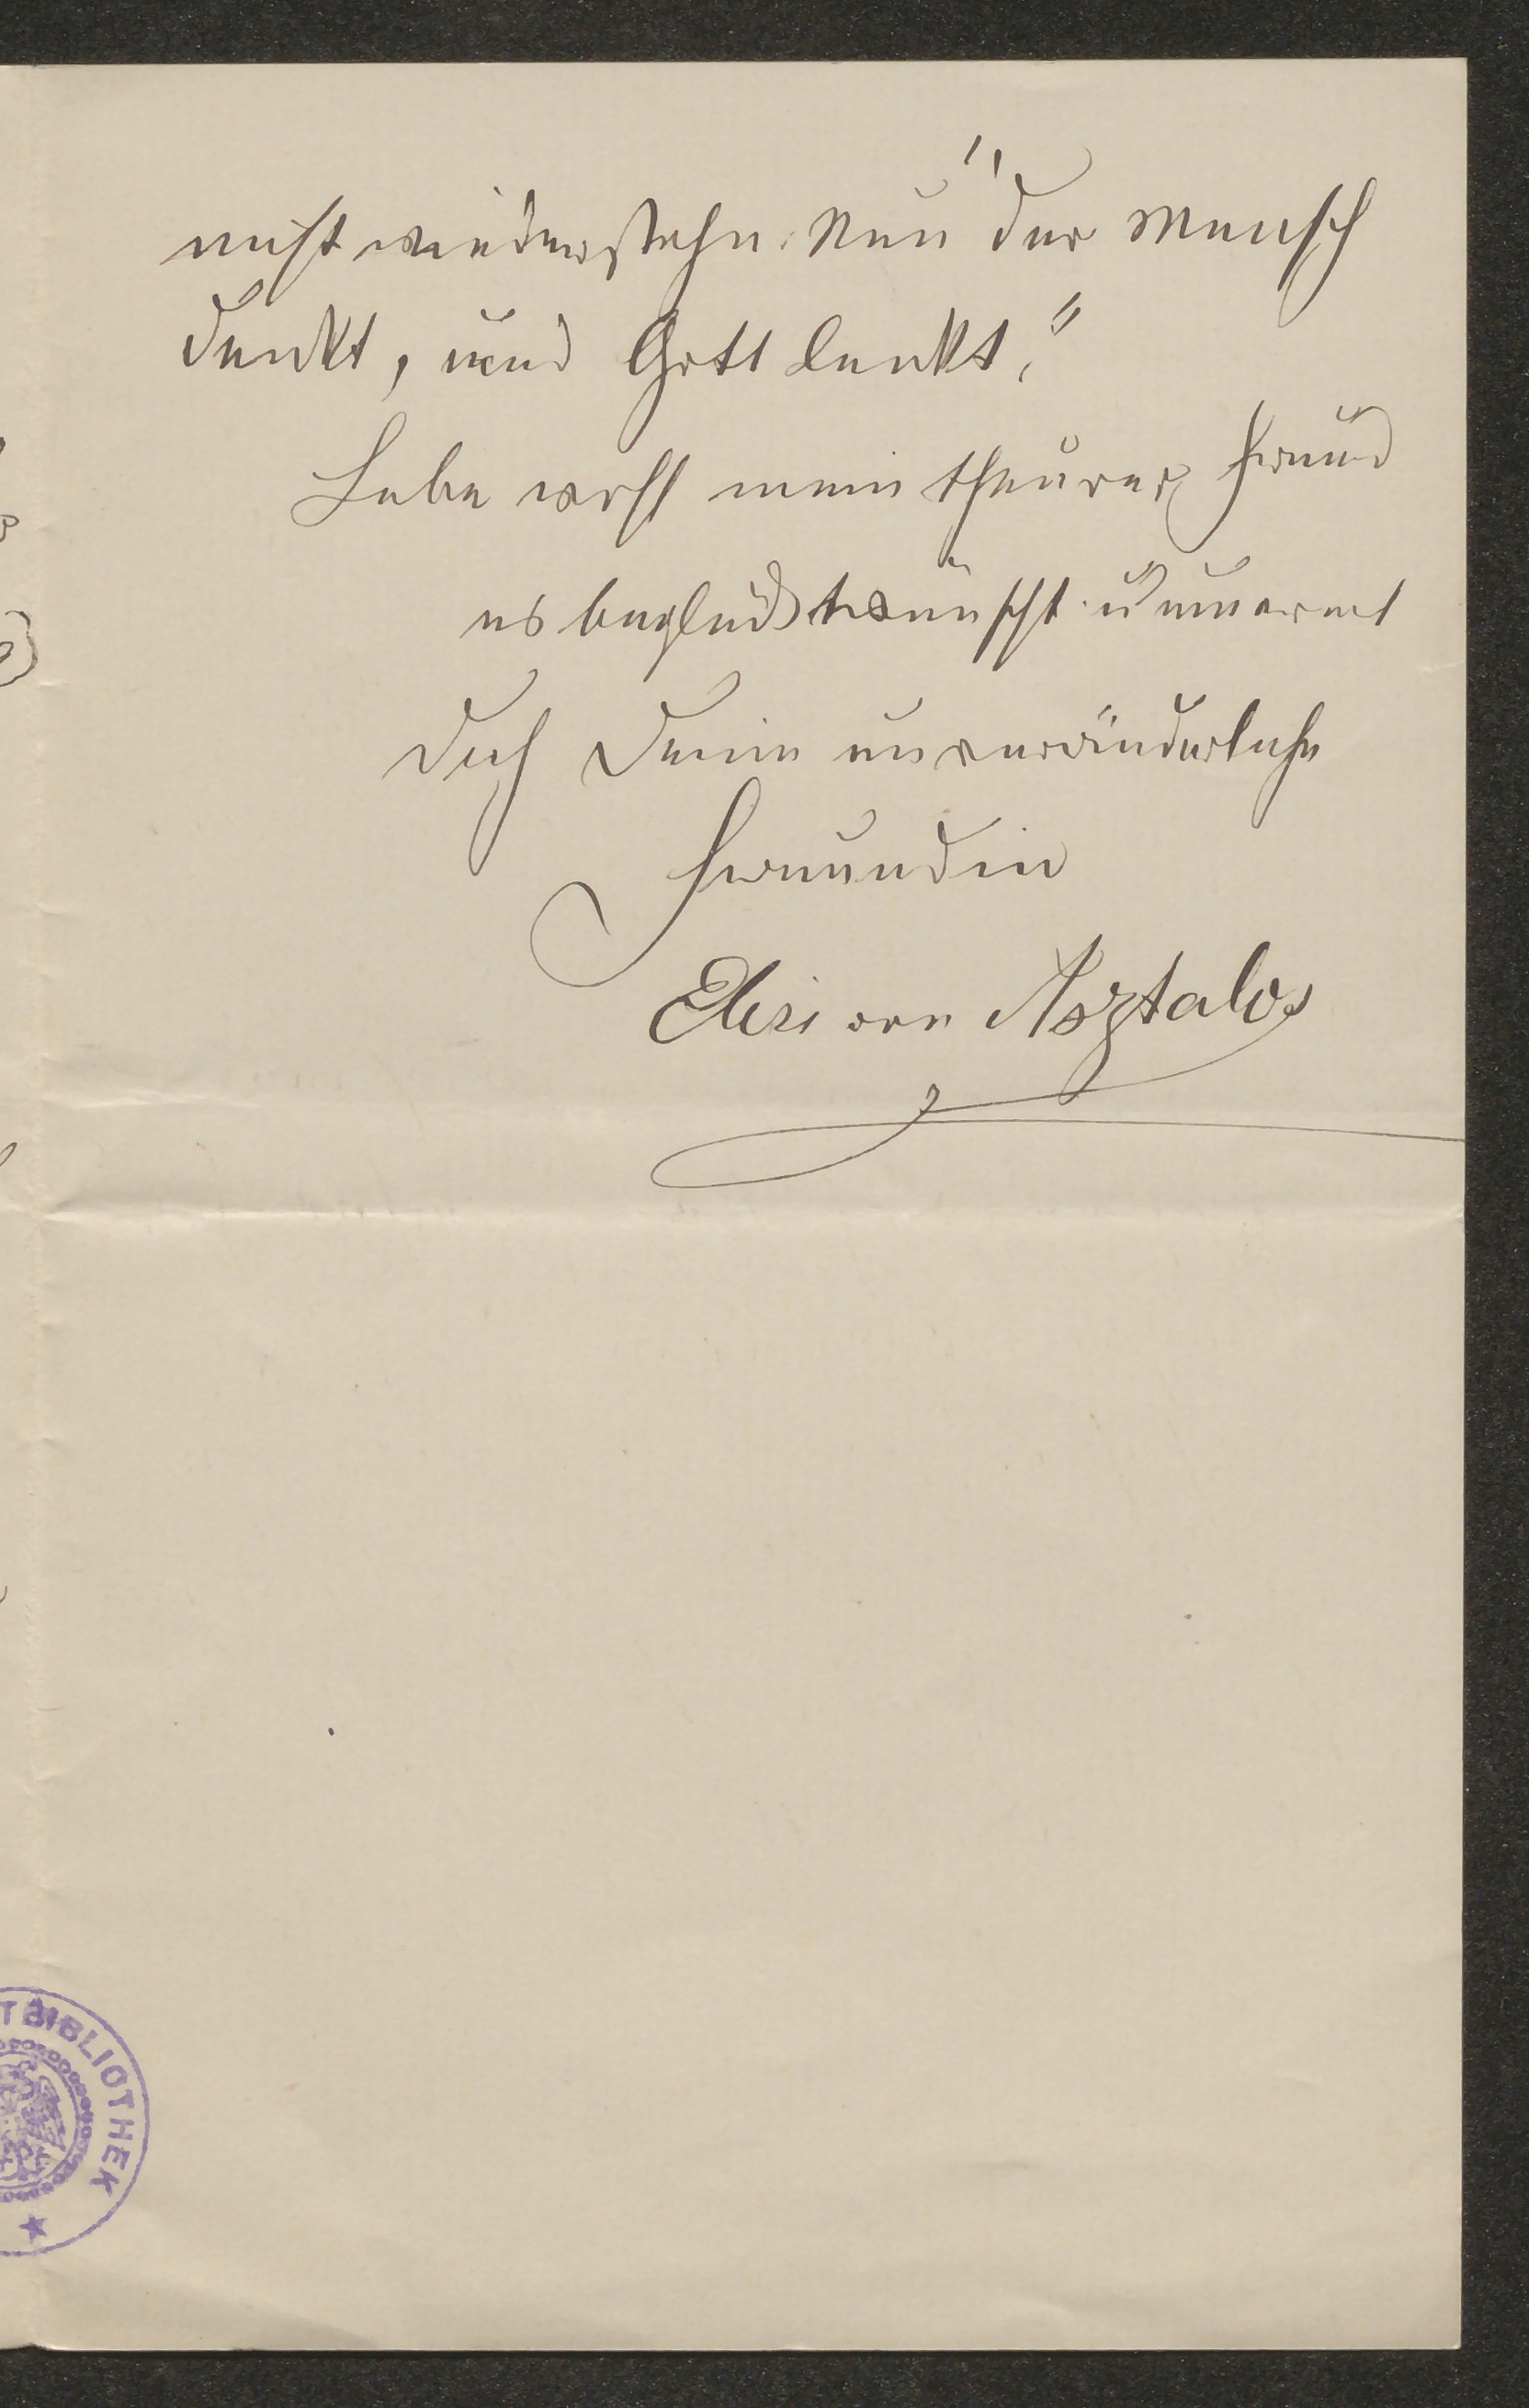 nicht wiederstehn. Nun "der Mensch
denkt, und Gott lenkt."
Lebe wohl mein theurer Freund
es beglückwünscht u umarmt
Dich Deine unveränderliche
Freundin
Elisi von Asztalos
TBIBLIOTHEK